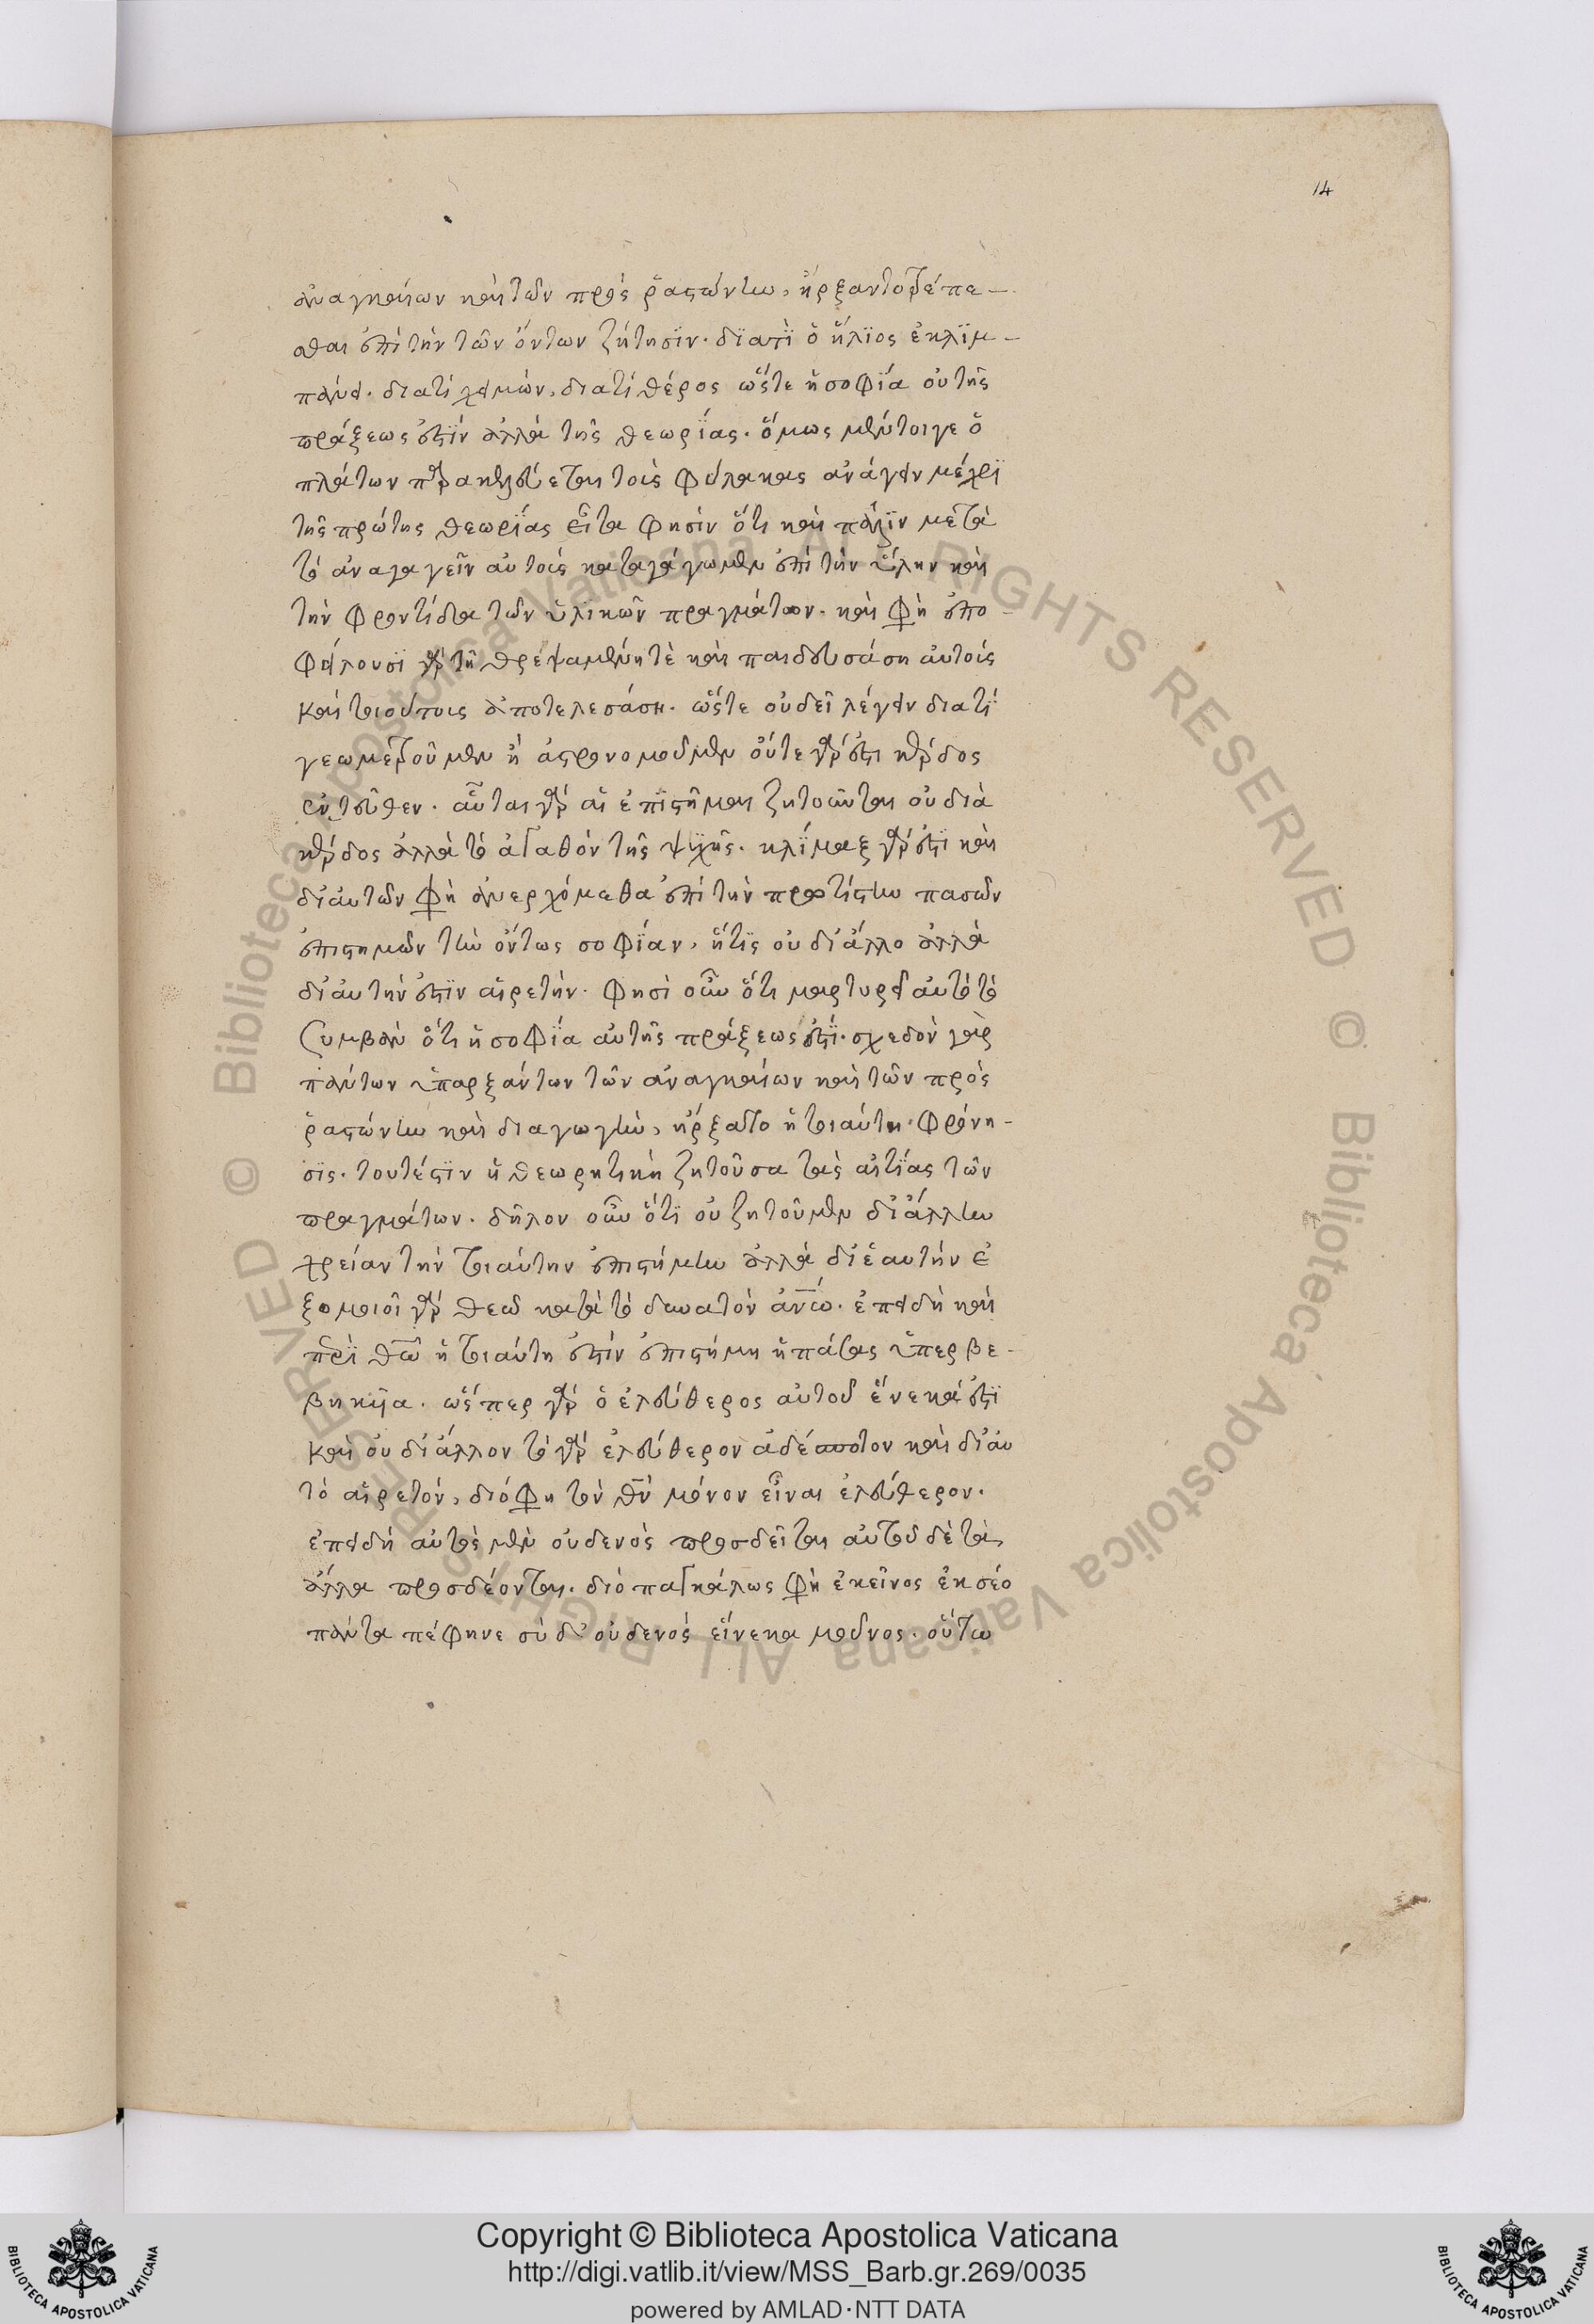 14
ἀναγκαίων καὶ τῶν πρὸς ῥαστώνην, ἤρξαντο τρέπε-
σθαι ἐπὶ τὴν τῶν ὄντων ζήτησϊν. δϊατὶ ὁ ἥλϊος ἐκλϊμ-
πάνει. διατί χειμών, διατί θέρος ὥστε ἡ σοφΐα οὐ τῆς
πράξεως ἐστϊν ἀλλὰ τῆς θεωρΐας. ὅμως μέντοιγε ὁ
πλάτων παρακελεύεται τοὺς φύλακας ἀνάγειν μέχρϊ
τῆς πρώτης θεωρΐας εἶτα φησὶν ὅτι καὶ πάλϊν μετὰ
τὸ ἀναγαγεῖν αὐτοὺς καταγάγωμεν ἐπὶ τὴν ὕλην καὶ
τὴν φροντίδα τῶν ὑλϊκῶν πραγμάτων. καὶ φη ἐπο
φείλουσϊ γὰρ τῇ θρεψαμένῃ τὲ καὶ παιδευσάσῃ αὐτοὺς
καὶ τοιούτους ἀποτελεσάσῃ. ὥστε οὐ δεῖ λέγειν διατϊ
γεωμετροῦμεν ἢ ἀστρονομοῦμεν οὔτε γάρ ἐστι κέρδος
ἐντεῦθεν. αὗται γὰρ αἱ ἐπϊστῆμαι ζητοῦνται οὐ διὰ
κέρδος ἀλλὰ τὸ ἀγαθὸν τῆς ψυχῆς. κλῖμαξ γάρ ἐστϊ καὶ
δι' αὐτῶν φη ἀνερχόμεθα ἐπὶ τὴν πρωτίστην πασῶν
ἐπιστημῶν τὴν ὄντως σοφΐαν, ἥτϊς οὐ δι' ἄλλο ἀλλὰ
δι' αὐτὴν ἐστϊν αἱρετήν. φησὶ οὖν ὅτι μαρτυρεῖ αὐτὸ τὸ
συμβὰν ὅτι ἡ σοφΐα αὐτῆς πράξεως ἐστΐ. σχεδὸν γὰρ
πάντων ὑπαρξάντων τῶν ἀναγκαίων καὶ τῶν πρὸς
ῥαστώνην καὶ διαγωγὴν, ἤρξατο ἡ τοιαύτη φρόνη-
σϊς. τουτέστϊν ἡ θεωρητικὴ ζητοῦσα τὰς αἰτΐας τῶν
πραγμάτων. δῆλον οὖν ὅτϊ οὐ ζητοῦμεν δι' ἄλλην
χρείαν τὴν τοιαύτην ἐπιστήμην ἀλλὰ δι' ἑαυτήν ἐ
ξομοιοῖ γὰρ θεῷ κατὰ τὸ δυνατὸν ἀνω. ἐπειδὴ καὶ
περϊ θυ ἡ τοιαύτη ἐστὶν ἐπιστήμη ἡ πάσας ὑπερβε-
βηκῖα. ὥσπερ γὰρ ὁ ἐλεύθερος αὐτοῦ ἕνεκά ἐστϊ
καὶ οὐ δι' ἄλλον τὸ γὰρ ἐλεύθερον ἀδέσποτον καὶ δι' αὑ
τὸ αἱρετόν, διό φη τὸν θν μόνον εἶναι ἐλεύθερον.
ἐπειδὴ αὐτὸς μὲν οὐδενὸς προσδεῖται αὐτοῦ δὲ τὰ
ἄλλα προσδέονται. διὸ παγκάλως φη ἐκεῖνος ἐκ σέο
πάντα πέφηνε σὺ δ' οὐδενὸς εἵνεκα μοῦνος. οὕτω
Copyright © Biblioteca Apostolica Vaticana
http://digi.vatlib.it/view/MSS_Barb.gr.269/0035
powered by AMLAD·NTT DATA